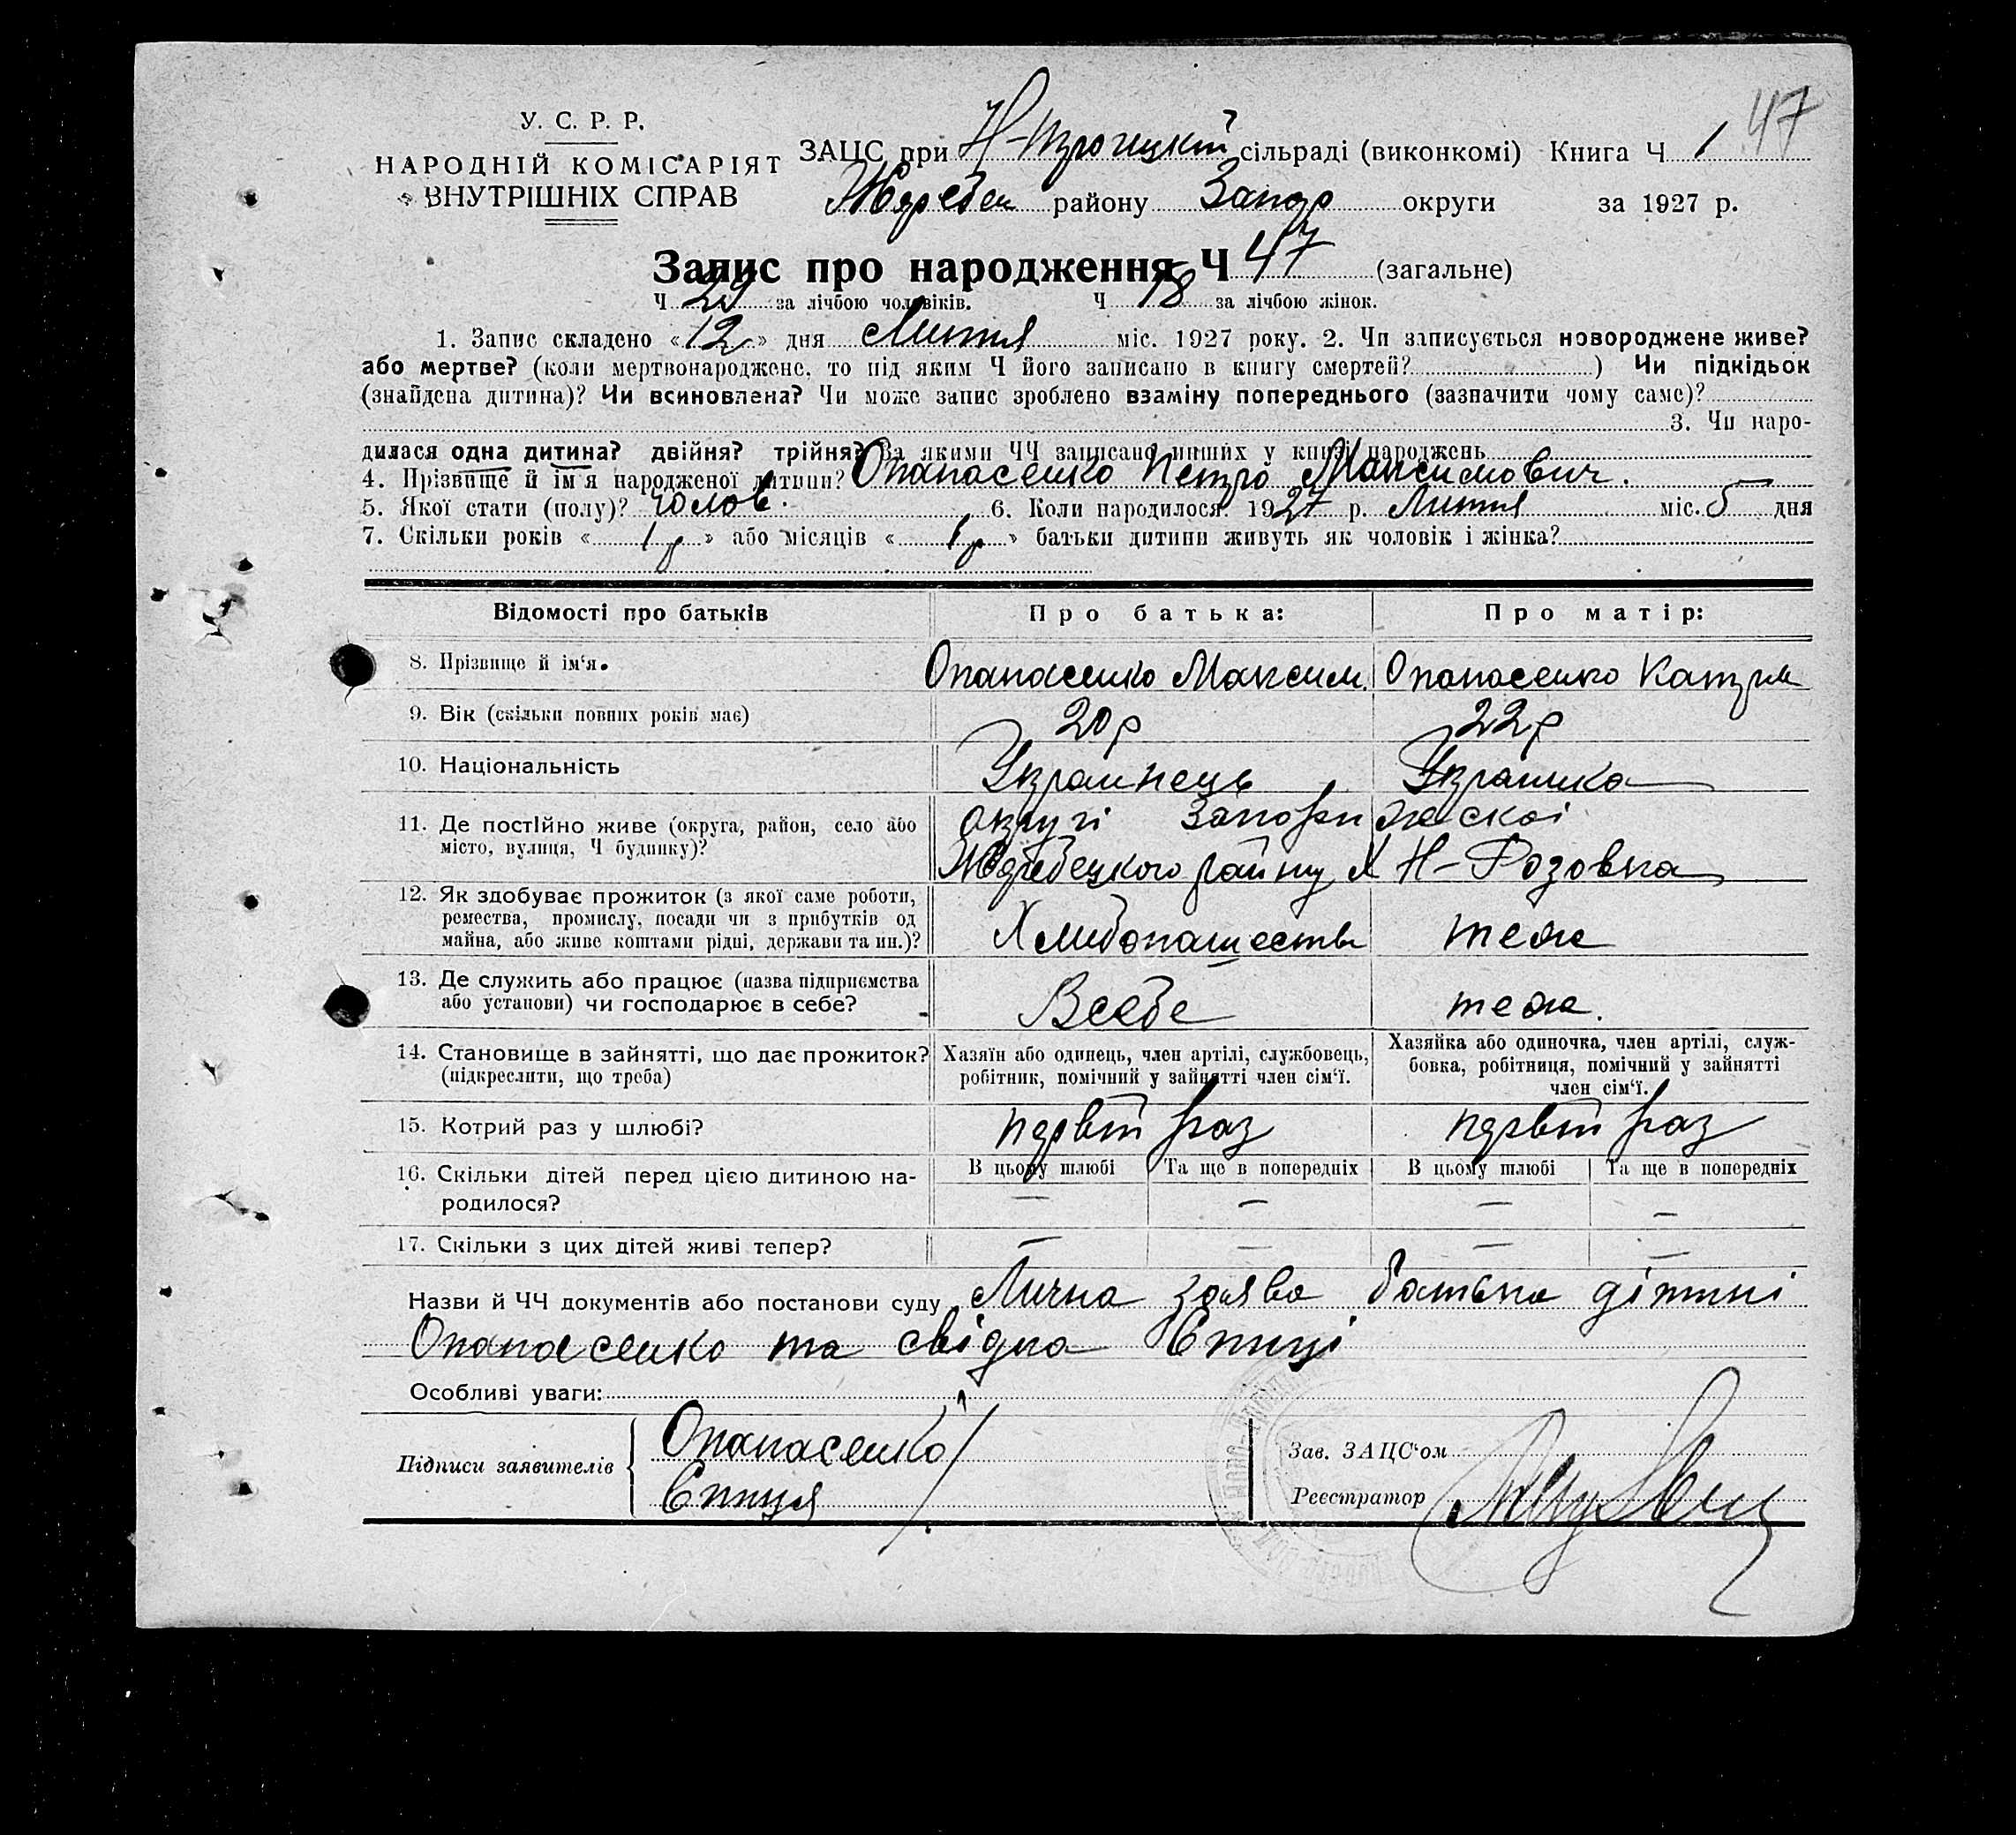 47
У. С. Р. Р.
НАРОДНІЙ КОМІСАРІЯТ
ВНУТРІШНІХ СПРАВ
ЗАЦС при сільраді (виконкомі) Книга Ч 1
Жеребец району Запор округи за 1927 р.
Запис про народження Ч 47 (загальне)
Ч 29 за лічбою чоловіків. Ч 18 за лічбою жінок.
1. Запис складено «12» дня міс. 1927 року. 2. Чи записується новороджене живе?
або мертве? (коли мертвонароджене, то під яким Ч його записано в книгу смертей? ) Чи підкідьок
(знайдена дитина)? Чи всиновлена? Чи може запис зроблено взаміну попереднього (зазначити чому саме)?
3. Чи наро-
дилася одна дитина? двійня? трійня? За якими ЧЧ записано инших у книзі народжень
4. Прізвище й ім'я народженої дитини? Опанасенко Петро Максимович.
5. Якої стати (полу)? чолов. 6. Коли народилося 1927 р. міс. 5 дня
7. Скільки років « 1 р » або місяців « » батьки дитини живуть як чоловік і жінка?
Відомості про батьків Про батька: Про матір:
8. Прізвище й ім'я. Опанасенко Максим. Опанасенко
9. Вік (скільки повних років має) 20 р 22 р
10. Національність Украинець Украинка
11. Де постійно живе (округа, район, село або округі Запорижскої
місто, вулиця, Ч будинку)? Жеребецкого району Х Н-Розовка
12. Як здобуває прожиток (з якої саме роботи,
ремества, промислу, посади чи з прибутків од
майна, або живе коштами рідні, держави та ин.)? теж
13. Де служить або працює (назва підприємства
або установи) чи господарює в себе? Всебе теж.
14. Становище в зайнятті, що дає прожиток? Хазяїн або одинець, член артілі, службовець, Хазяйка або одиночка, член артілі, служ-
(підкреслити, що треба) робітник, помічний у зайнятті член сім'ї. бовка, робітниця, помічний у зайнятті
член сім'ї.
15. Котрий раз у шлюбі? раз раз
16. Скільки дітей перед цією дитиною на- В цьому шлюбі Та ще в попередніх В цьому шлюбі Та ще в попередніх
родилося? — — — —
17. Скільки з цих дітей живі тепер? — — — —
Назви й ЧЧ документів або постанови суду Лична заява батька
Опанасенко та свідка
Особливі уваги:
Підписи заявителів Опанасенко
Зав. ЗАЦС'ом
Реєстратор